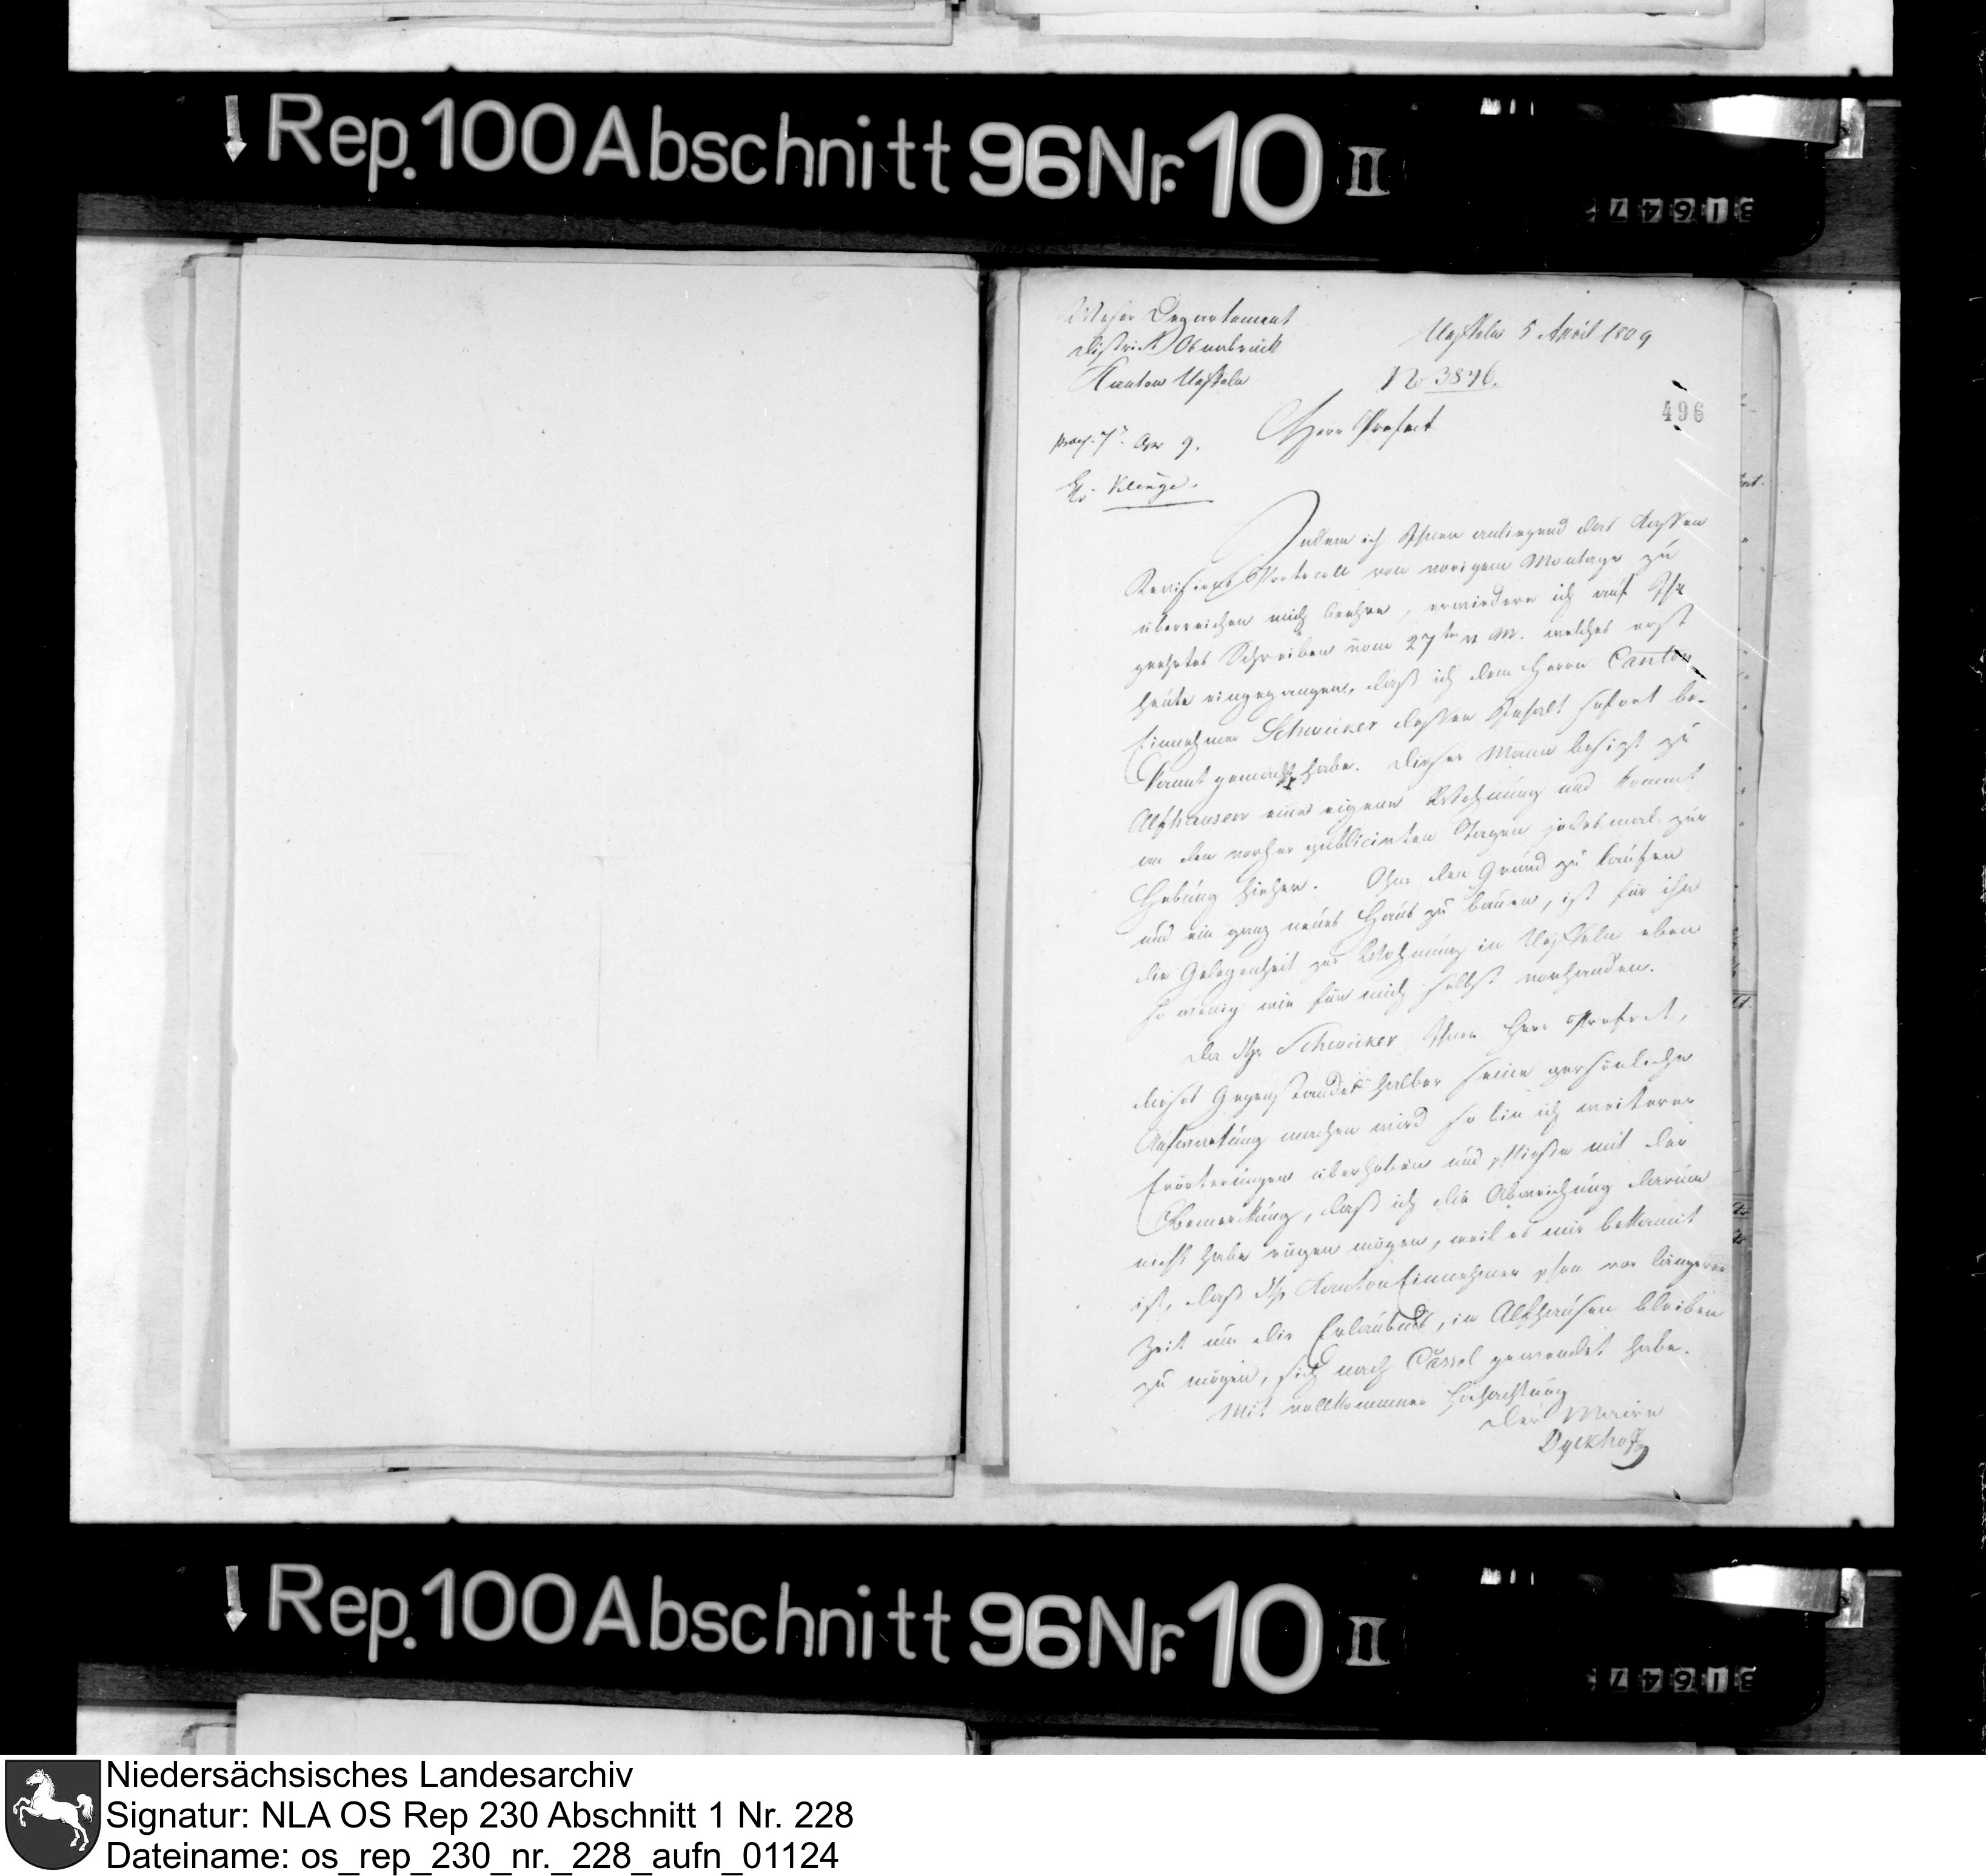 Rep. 100 Abschnitt 96 Nr. 10 II
31647
Weser Departement
District Osnabrück
Kanton Ueffeln
Ueffeln 5 April 1809
No 3846.
496
Herr Prefect
praes. 7t. Apr 9.
Indem ich Ihnen anliegend das Cassen
Revisions Protocoll von vorigem Montage zu
überreichen mich beehre, erwiedere ich auf Ihr
geehrtes Schreiben vom 27ten v. M. welches erst
heute eingegangen, daß ich dem Herrn Canton
Einnehmer Schwicker dessen Inhalt sofort be-
kannt gemacht habe. Dieser Mann besizt zu
Alfhausen eine eigene Wohnung und kommt
an den vorher publicirten Tagen jedesmal zur
Hebung hieher. Ohne den Grund zu kaufen
und ein ganz neues Haus zu bauen, ist für ihn
die Gelegenheit zur Wohnung in Ueffeln eben
so wenig wie für mich selbst vorhanden.
Da Hr Schwicker Ihnen Herr Prefect,
dieses Gegenstandes halber seine persönliche
Aufwartung machen wird so bin ich weiterer
Erörterungen überhoben und schließe mit der
Bemerkung, daß ich die Abweichung darum
nicht habe rügen mögen, weil es mir bekannt
ist, daß Hr Kanton Einnehmer schon vor längerer
Zeit um die Erlaubniß, in Alfhausen bleiben
zu mögen, sich nach Cassel gewendet habe.
Mit vollkommner Hochachtung
Der Maire
Dyckhoff
Rep. 100 Abschnitt 96 Nr. 10 II
31647
Niedersächsisches Landesarchiv
Signatur: NLA OS Rep 230 Abschnitt 1 Nr. 228
Dateiname: os_rep_230_nr._228_aufn_01124